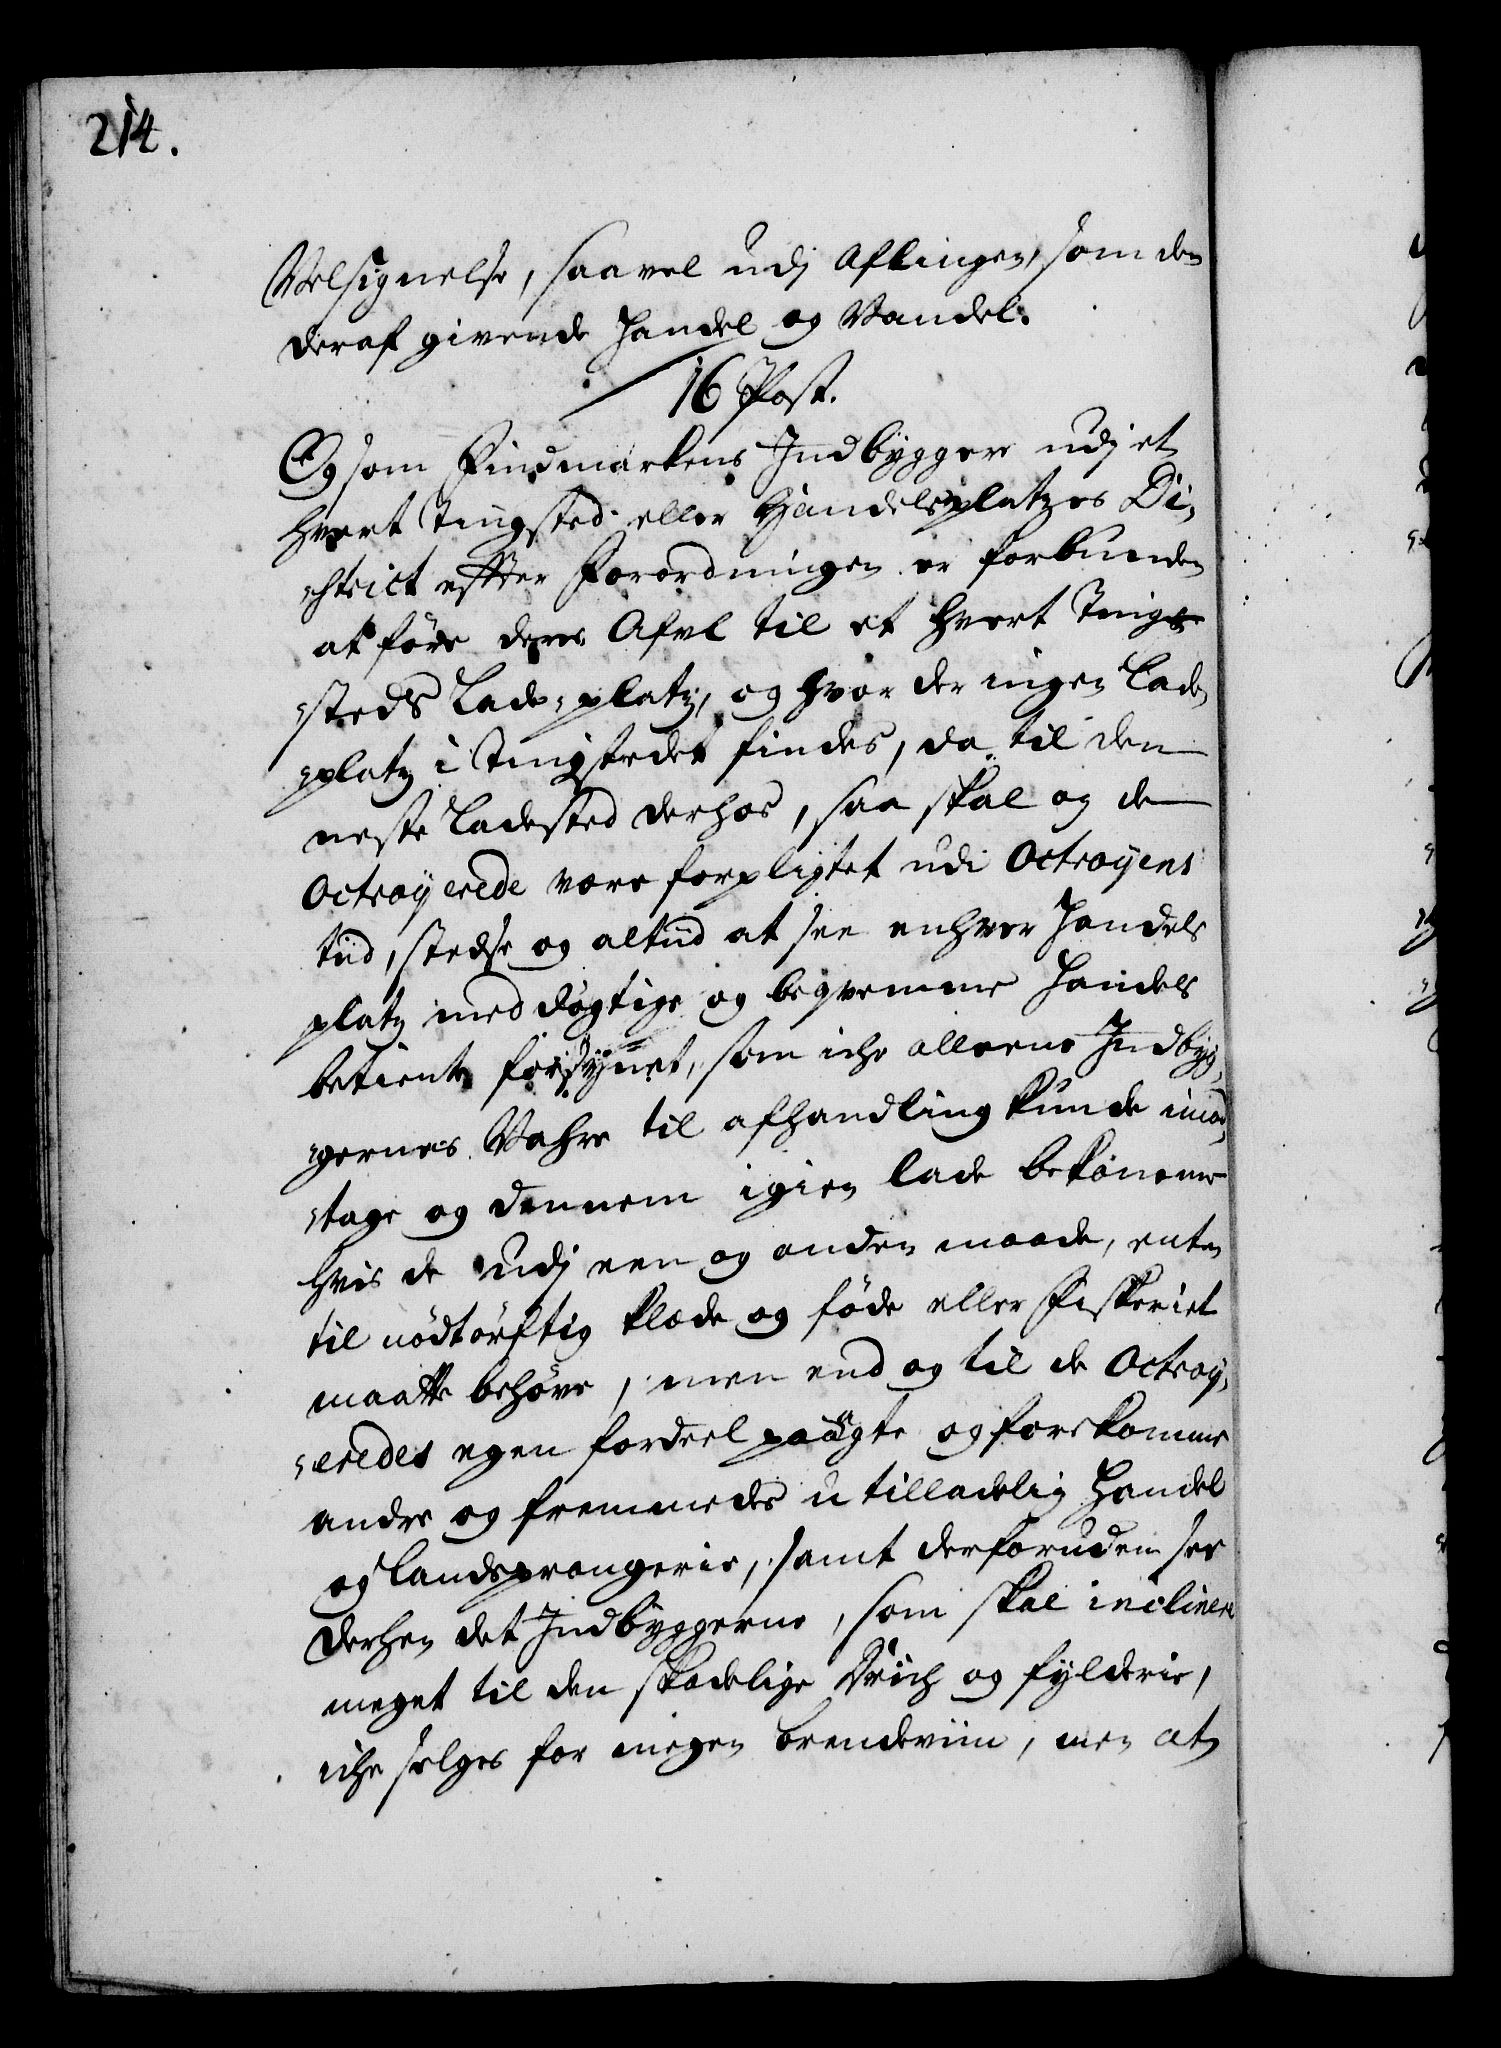 214.
Velsignelse, saavel udj Aflingen, som den
deraf givende Handel og Vandel.
16 Post.
Og som Findmarkens Indbyggere udj et
hvert Tingsted eller Handelsplatzes Di„
„strict efter Forordningen er forbunden
at före deres Afvl til et hvert Ting„
„steds Lade„platz, og hvor der ingen Lade„
„platz i Tingstedet findes, da til den
neste Ladested derhos, saa skal og de
Octroyerede være forpligtet udi Octroyens
tiid, stedse og altiid at see enhver Handels
platz med dögtige og beqvemme Handels
betiente forsÿnet, som icke alleene Indbyg„
„gernes Vahre til afhandling kunde imod„
„tage og dennem igien lade bekomme
hvis de udj een og anden maade, enten
til nödtörftig klæde og föde eller Fiskeriet
maatte behöve, men end og til de Octroy„
„eredes egen fordeel paaagte og forekomme
andre og fremmedes utilladelig Handel
og Landprangerie, samt derforuden see
derhen det Indbyggerne, som skal inclinere
meget til den skadelige Drick og fylderie,
icke selges for megen brendeviin, men at